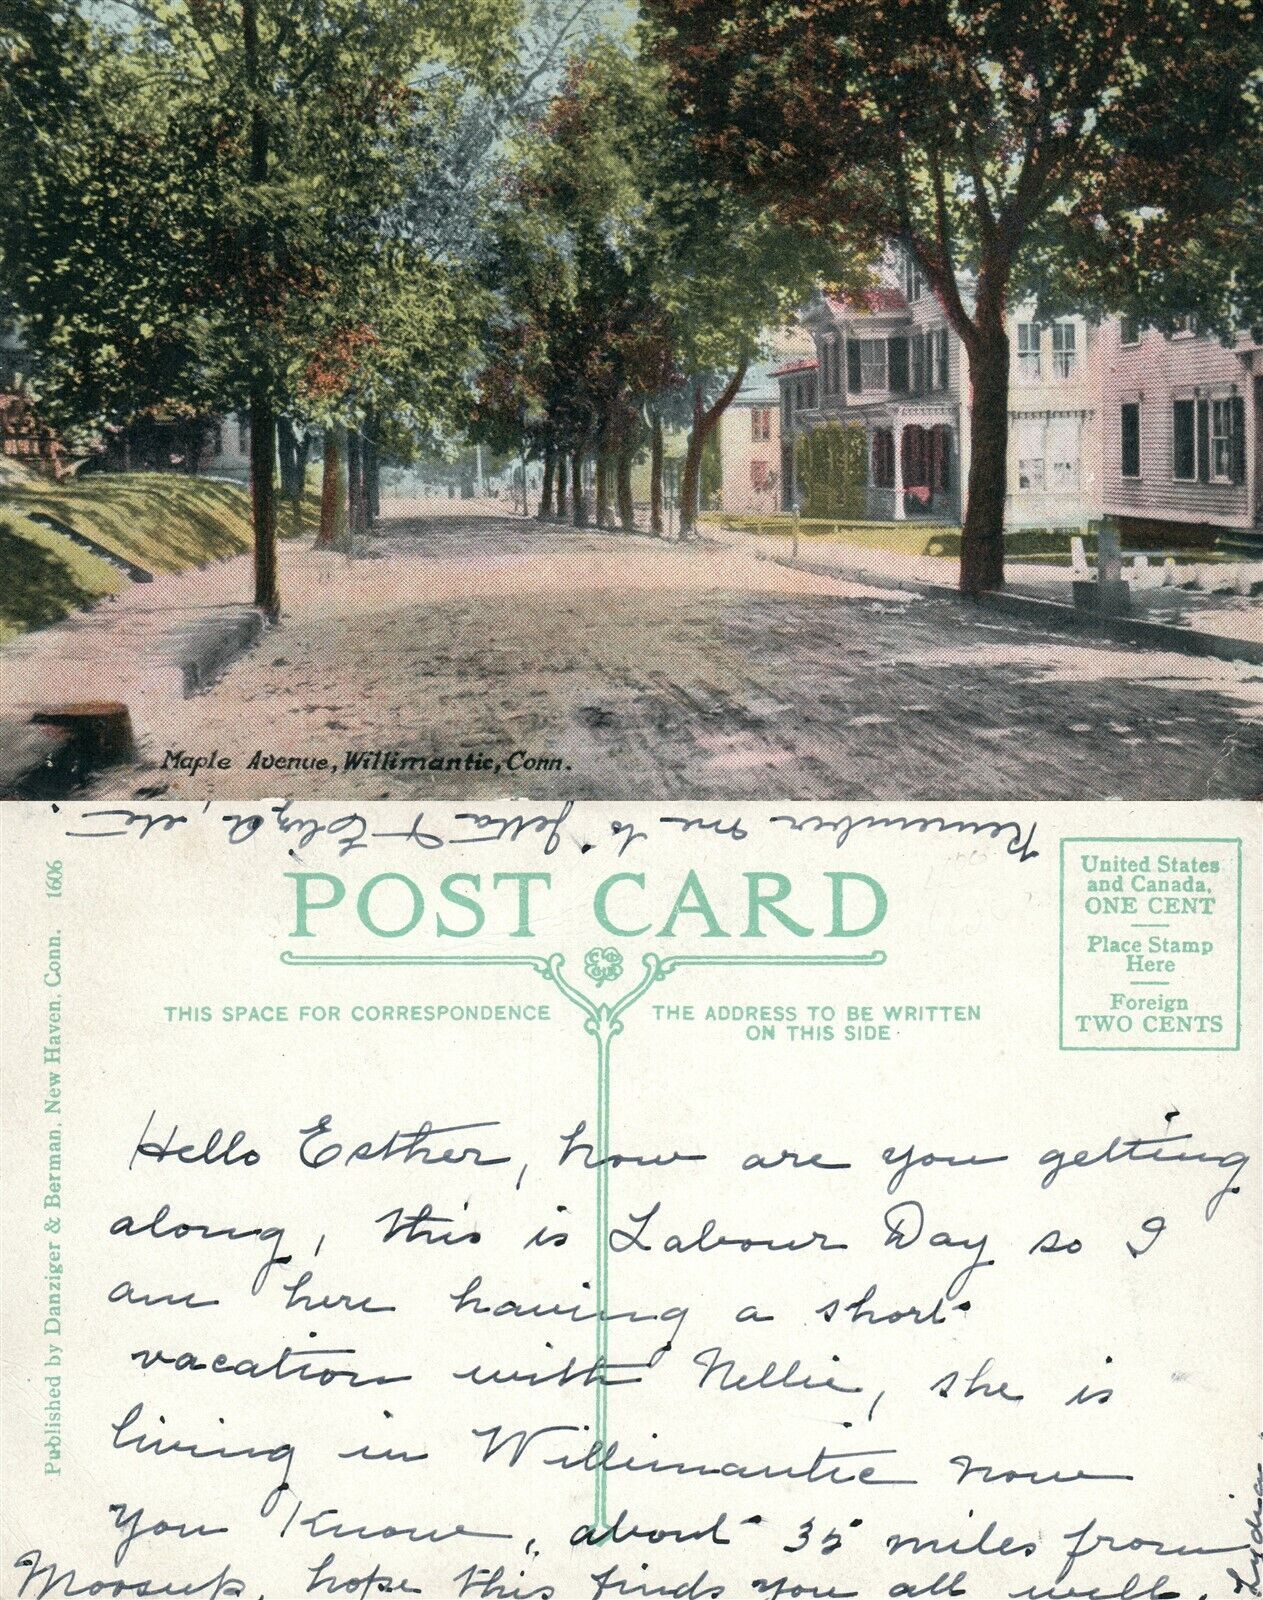 Maple Avenue, Willimantic, Conn.
Remember me to Jetta & Eliza, etc.
POST CARD
United States
and Canada,
ONE CENT
Place Stamp
Here
Foreign
TWO CENTS
THIS SPACE FOR CORRESPONDENCE
THE ADDRESS TO BE WRITTEN
ON THIS SIDE
Published by Danziger & Berman, New Haven, Conn. 1606
Hello Esther, how are you getting
along, this is Labour Day so I
am here having a short
vacation with Nellie, she is
living in Willimantic now
you know, about 35 miles from
Moosup, hope this finds you all well.
Lydia.